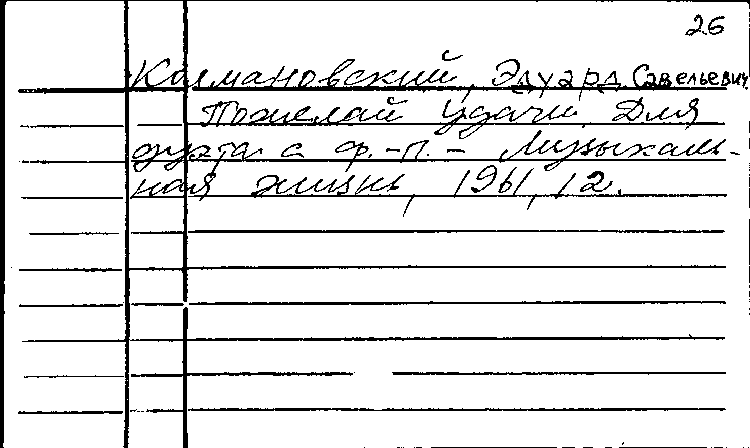 26
Колмановский, Эдуард Савельевич
Пожелай удачи. Для
дуэта с ф.-п. – Музыкаль-
ная жизнь, 1961, 12.